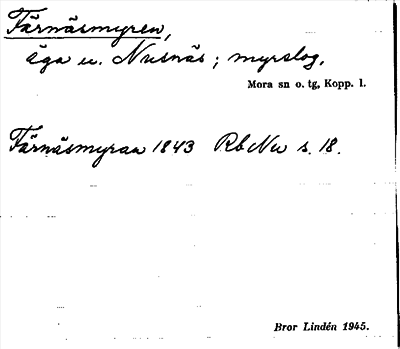 Färnäsmyren,
äga u. Nusnäs; myrslog.
Mora sn o. tg, Kopp. l.
Färnäsmyran 1843 RbNu s. 18.
Bror Lindén 1945.